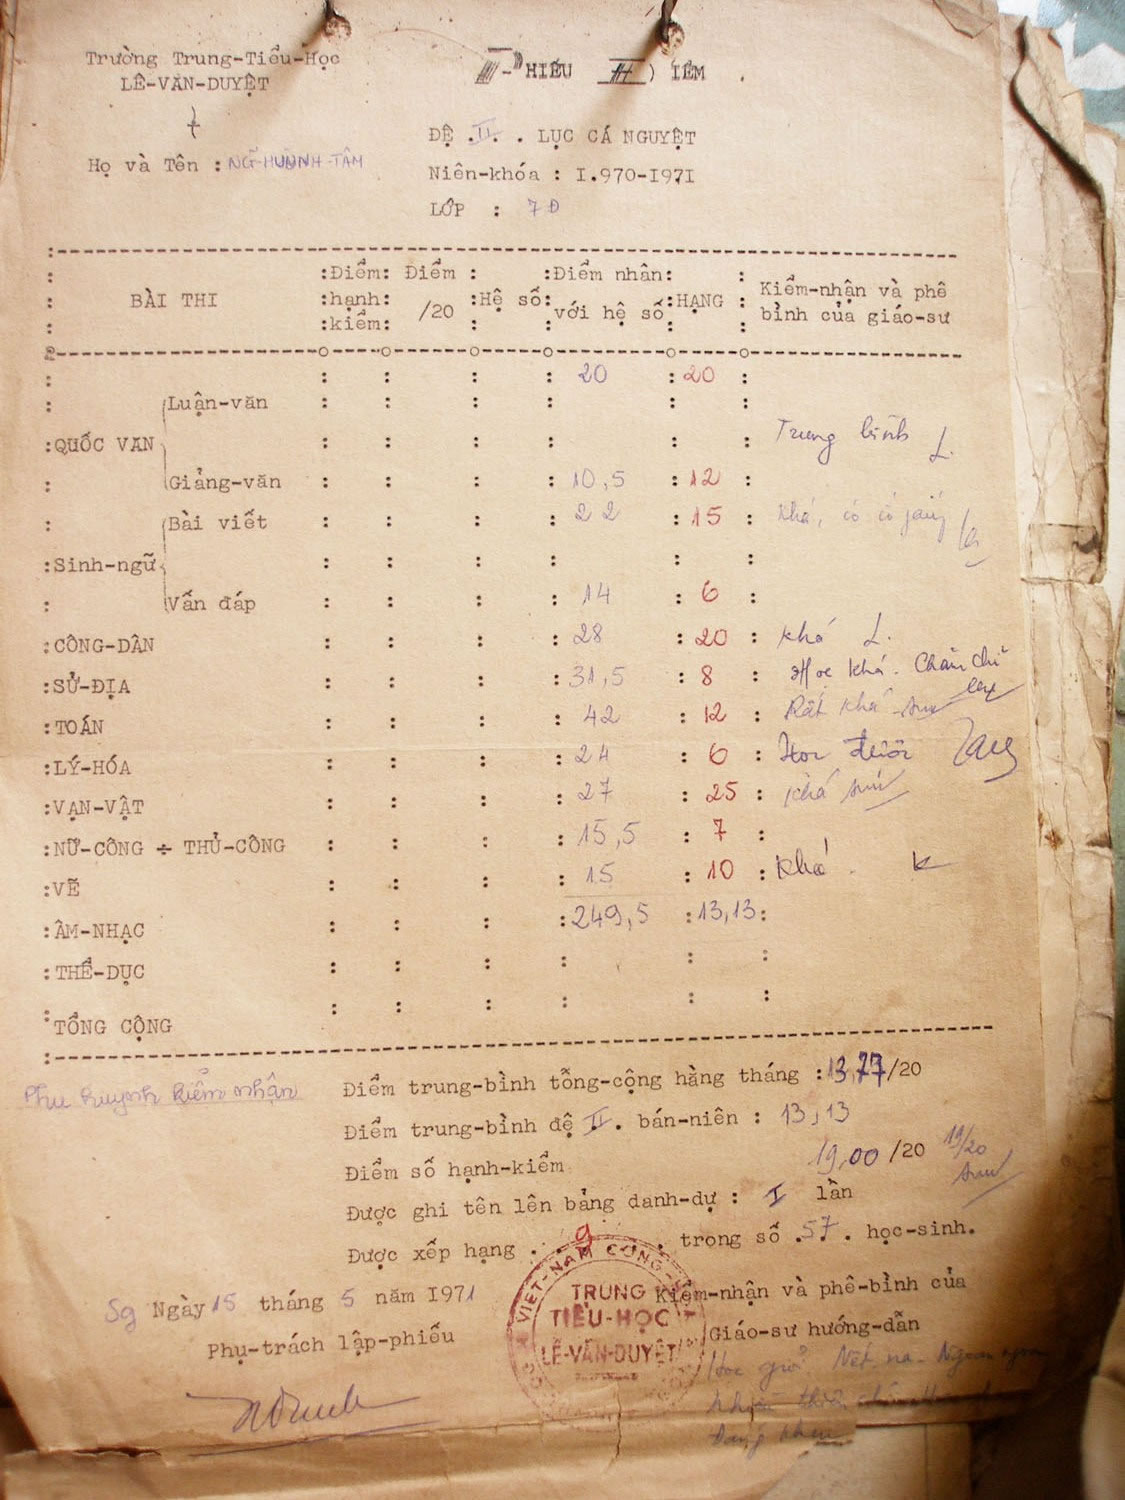 Trường Trung-Tiểu-Học
LÊ-VĂN-DUYỆT
HIẾU IỂM
ĐỆ .II. . LỤC CÁ NGUYỆT
Họ và Tên : NG-HUỲNH-TÂM
Niên-khóa : I.970-I97I
LỚP : 7Đ
BÀI THI :Điểm hạnh kiểm: Điểm /20 :Hệ số: Điểm nhân với hệ số :HẠNG : Kiểm-nhận và phê bình của giáo-sư
20 : 20 :
Luận-văn
:QUỐC VĂN Trung bình
Giảng-văn 10,5 : 12 :
Bài viết 22 : 15 : Khá, có cố gắng
:Sinh-ngữ
Vấn đáp : 14 : 6 :
:CÔNG-DÂN : 28 : 20 : khá
:SỬ-ĐỊA : 31,5 : 8 : Học khá. Chăm chỉ
:TOÁN : 42 : 12 : Rất khá
:LÝ-HÓA : 24 : 6 : Học được
:VẠN-VẬT : 27 : 25 : khá
:NỮ-CÔNG ÷ THỦ-CÔNG : 15,5 : 7 :
:VẼ : 15 : 10 : Khá.
:ÂM-NHẠC : 249,5 : 13,13 :
:THỂ-DỤC
:TỔNG CỘNG
Phụ huynh kiểm nhận
Điểm trung-bình tổng-cộng hằng tháng : 13,77/20
Điểm trung-bình đệ II. bán-niên : 13,13
Điểm số hạnh-kiểm 19,00 /20 19/20
Được ghi tên lên bảng danh-dự : I lần
Được xếp hạng . . 9 . . trong số .57. . học-sinh.
Sg Ngày 15 tháng 5 năm I971
Phụ-trách lập-phiếu
Kiểm-nhận và phê-bình của
Giáo-sư hướng-dẫn
VIỆT-NAM CỘNG
TRUNG
TIỂU-HỌC
LÊ-VĂN-DUYỆT
Học giỏi. Nết na. Ngoan ngoãn